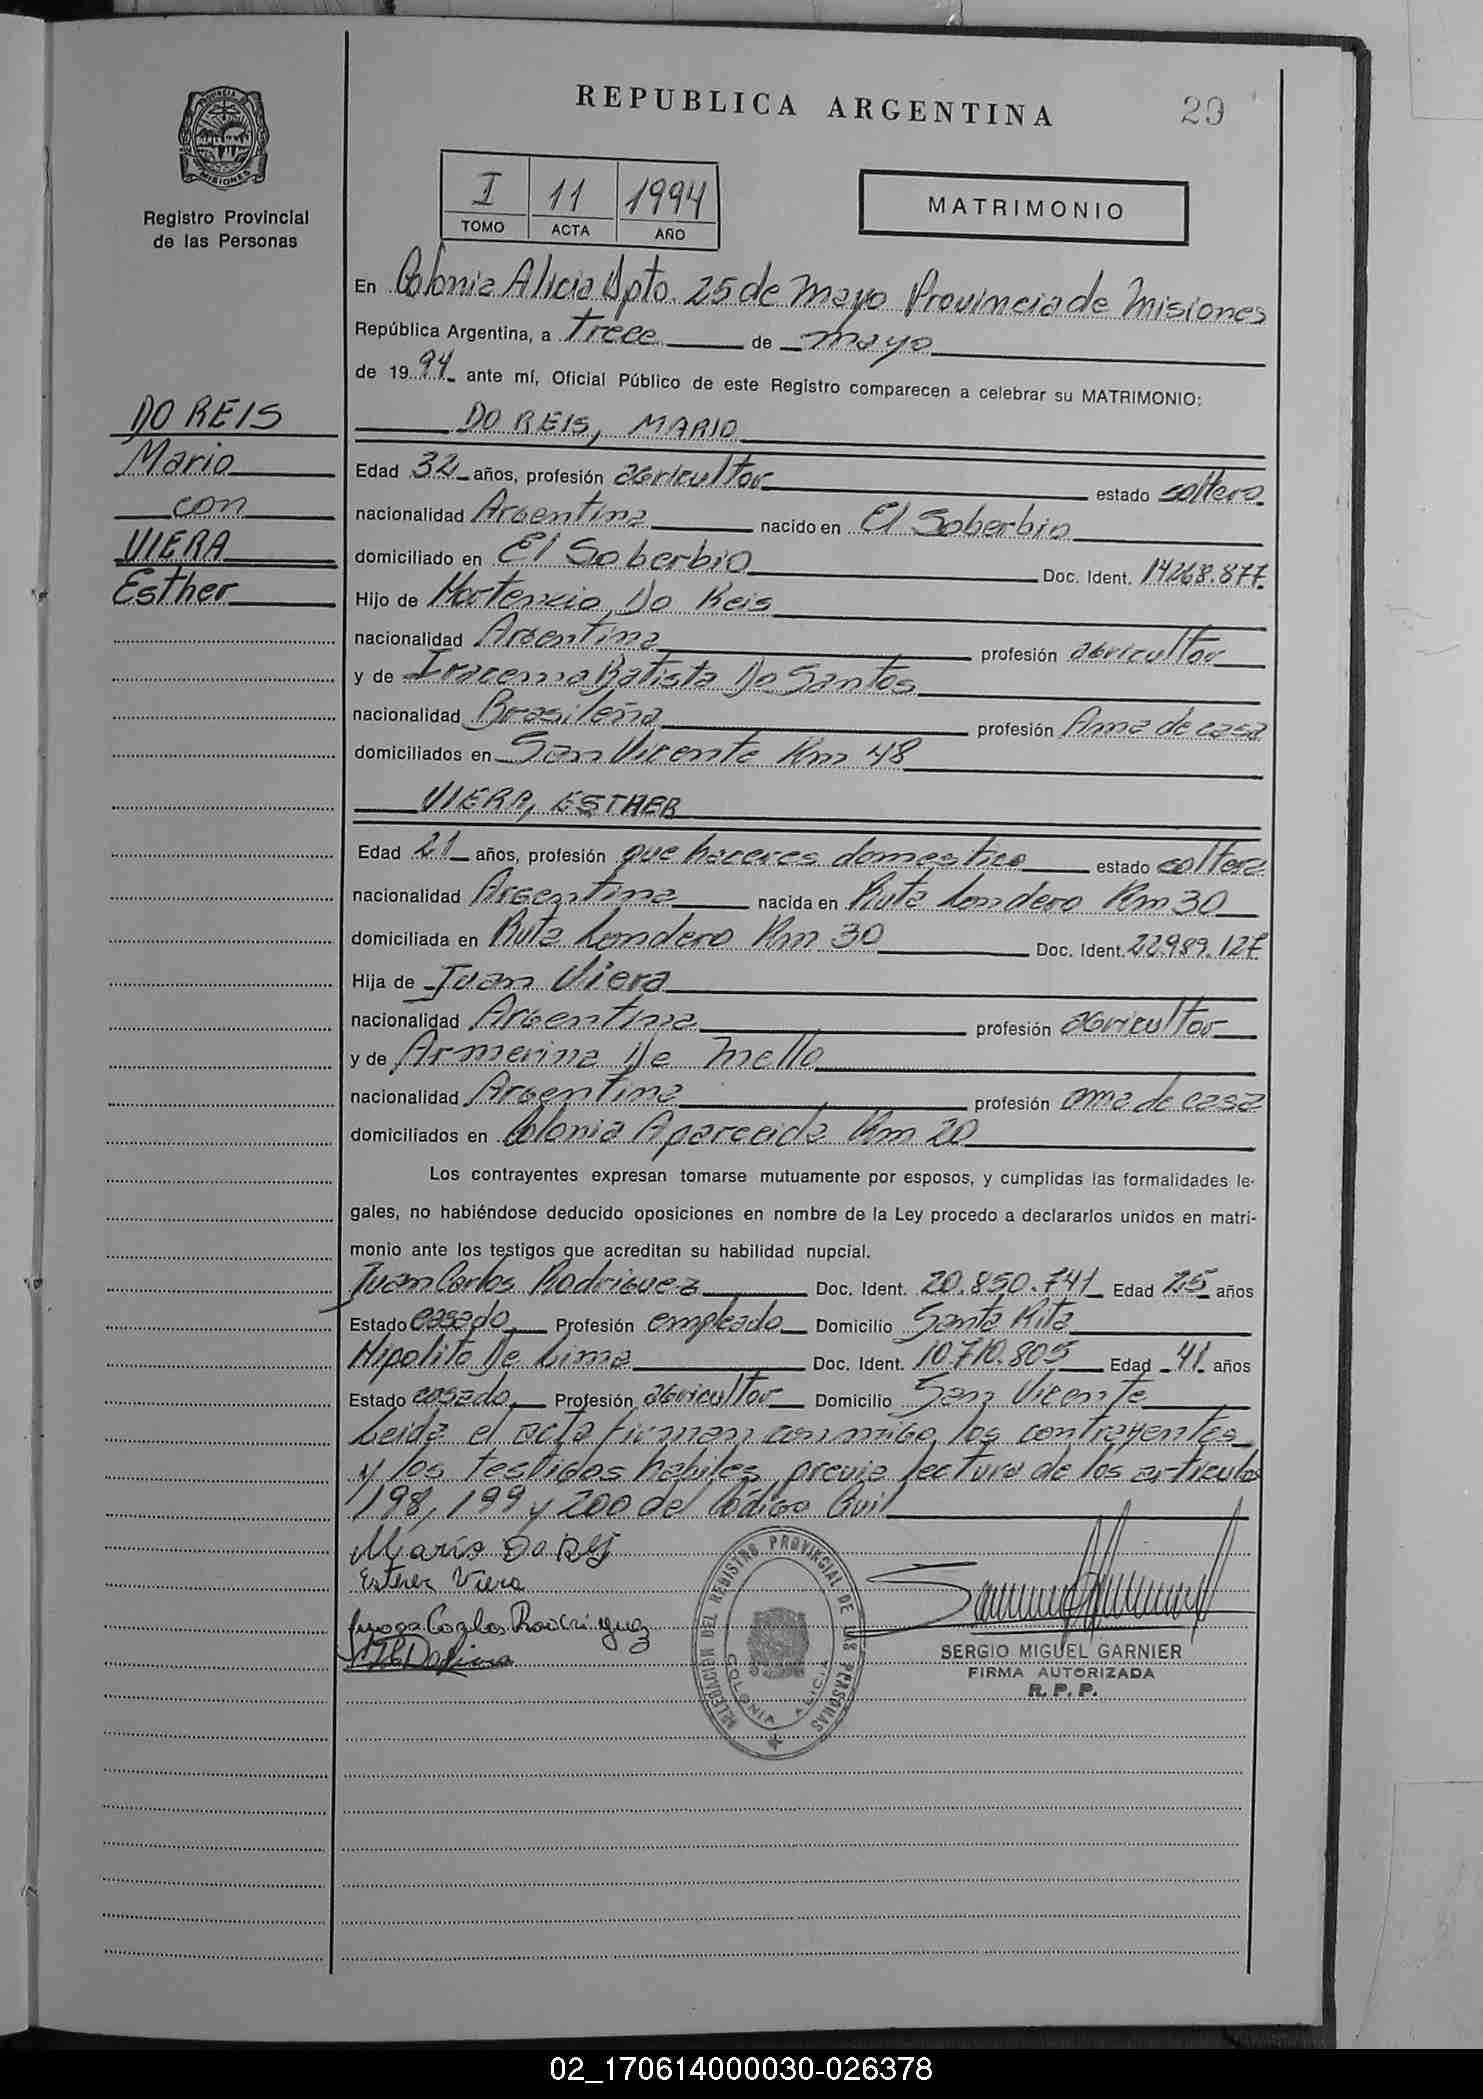 REPUBLICA ARGENTINA
29
PROVINCIA DE MISIONES
Registro Provincial
de las Personas
I 11 1994
TOMO ACTA AÑO
MATRIMONIO
En Colonia Alicia Dpto. 25 de Mayo Provincia de Misiones
República Argentina, a Trece de mayo
de 1994 ante mí, Oficial Público de este Registro comparecen a celebrar su MATRIMONIO:
DO REIS
Mario
con
VIERA
Esther
DO REIS, MARIO
Edad 32 años, profesión agricultor estado soltero
nacionalidad Argentina nacido en El Soberbio
domiciliado en El Soberbio Doc. Ident. 14268.877
Hijo de Hortencio Do Reis
nacionalidad Argentina profesión agricultor
y de Iracema Batista Do Santos
nacionalidad Brasileña profesión Ama de casa
domiciliados en San Vicente Km 48
VIERA, ESTHER
Edad 21 años, profesión que haceres domestico estado soltera
nacionalidad Argentina nacida en Ruta Londero Km 30
domiciliada en Ruta Londero Km 30 Doc. Ident. 22.989.127
Hija de Juan Viera
nacionalidad Argentina profesión agricultor
y de Armerina De Mello
nacionalidad Argentina profesión ama de casa
domiciliados en Colonia Aparecida Km 20
Los contrayentes expresan tomarse mutuamente por esposos, y cumplidas las formalidades le-
gales, no habiéndose deducido oposiciones en nombre de la Ley procedo a declararlos unidos en matri-
monio ante los testigos que acreditan su habilidad nupcial.
Juan Carlos Rodriguez Doc. Ident. 20.850.741 Edad 25 años
Estado casado Profesión empleado Domicilio Santa Rita
Hipolito De Lima Doc. Ident. 10.710.805 Edad 41 años
Estado casado Profesión agricultor Domicilio San Vicente
Leida el acta firman conmigo los contrayentes
y los testigos habiles previa lectura de los articulos
198, 199 y 200 del Código Civil
Mario Do Reis
Esther Viera
Carlos Rodriguez
DELEGACION DEL REGISTRO PROVINCIAL DE LAS PERSONAS
COLONIA ALICIA
SERGIO MIGUEL GARNIER
FIRMA AUTORIZADA
R. P. P.
02_170614000030-026378